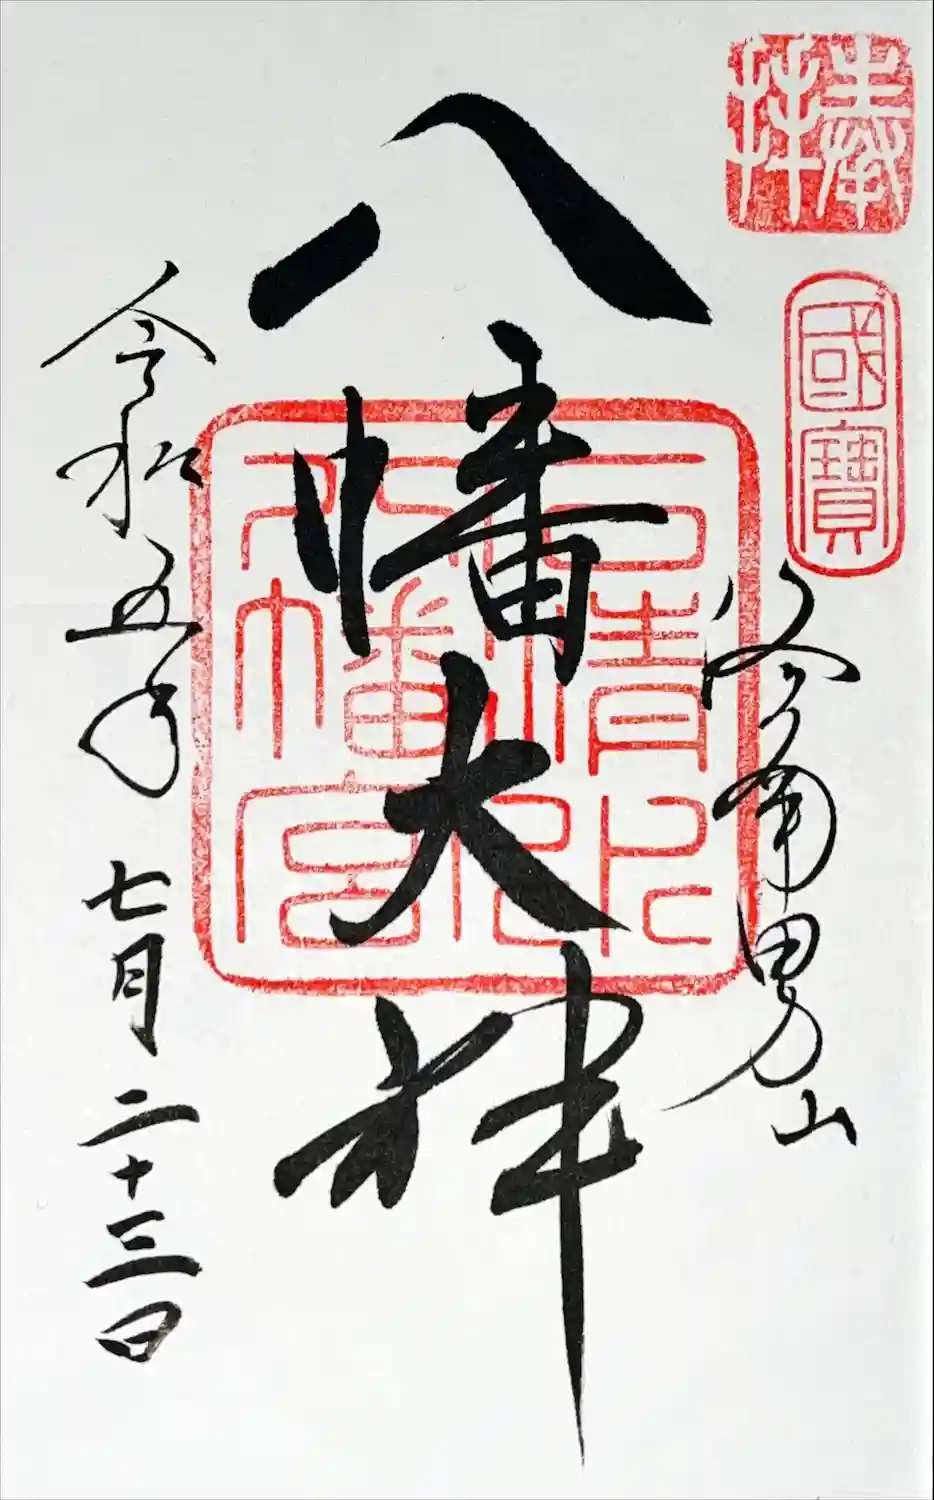 奉拝
國寶
洛南男山
八幡大神
石清水八幡宮印
令和五年七月二十三日